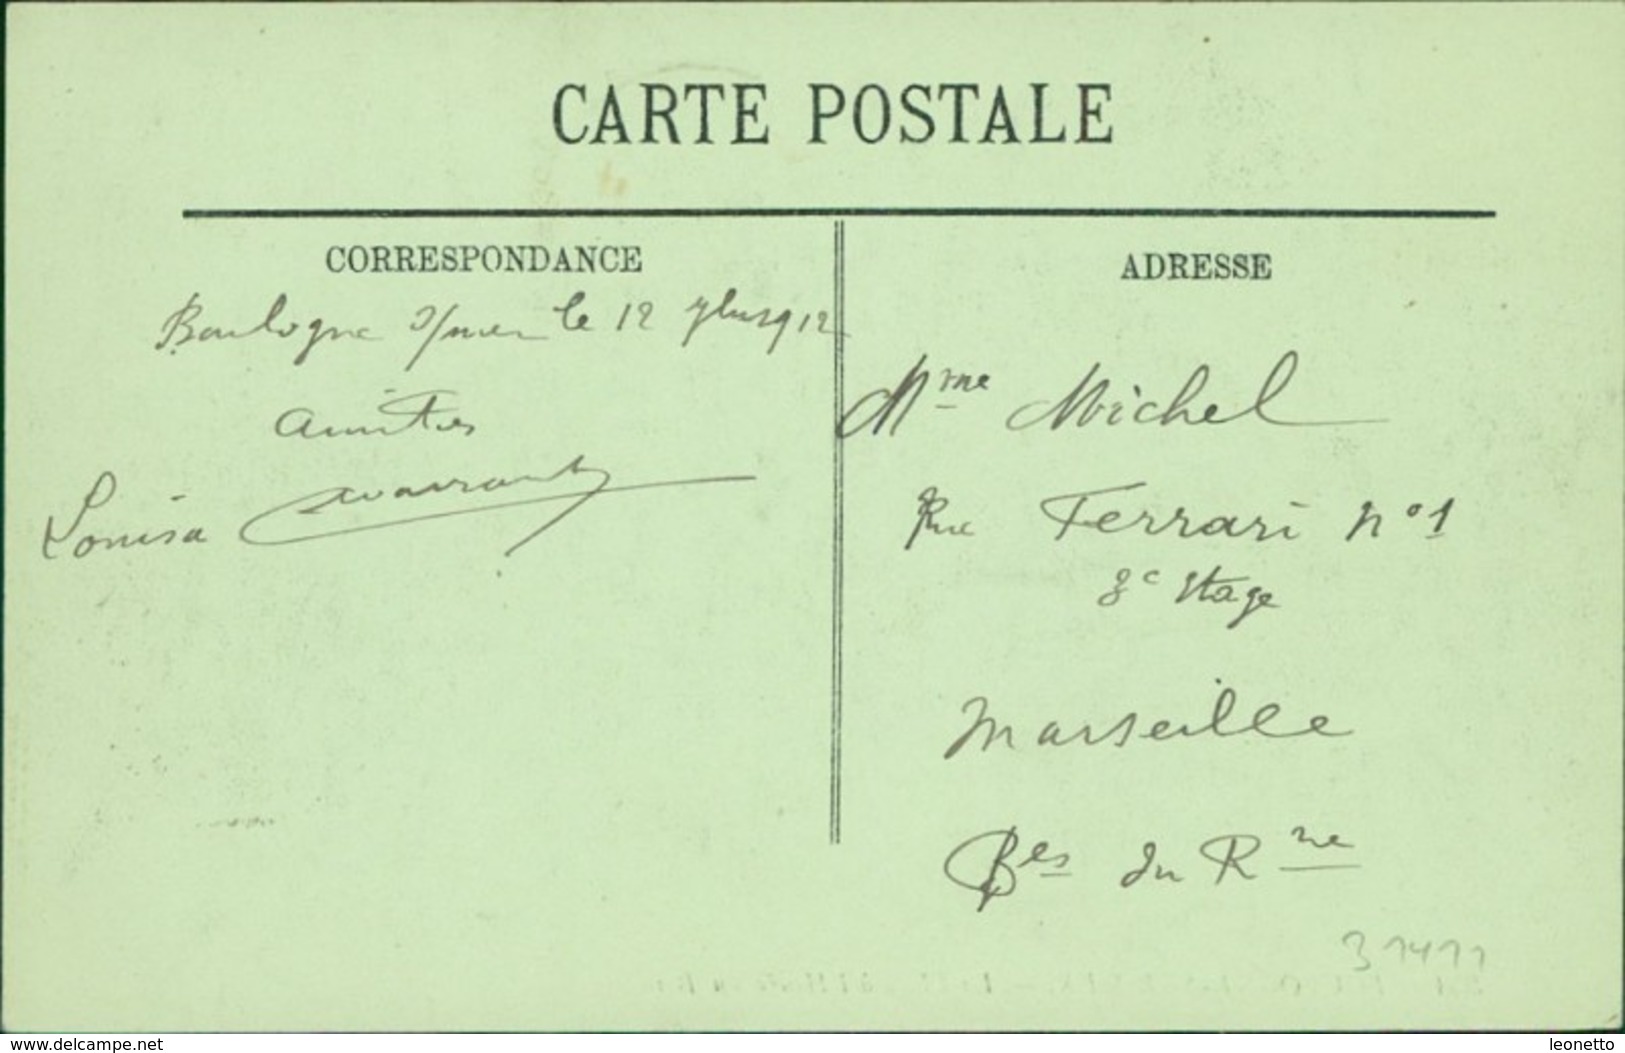 CARTE POSTALE
CORRESPONDANCE
Boulogne s/mer le 12 7bre 1912
amitiés
Louisa
ADRESSE
Mme Michel
Rue Ferrari n° 1
3e étage
Marseille
Bes du Rne
31411
www.delcampe.net
leonetto